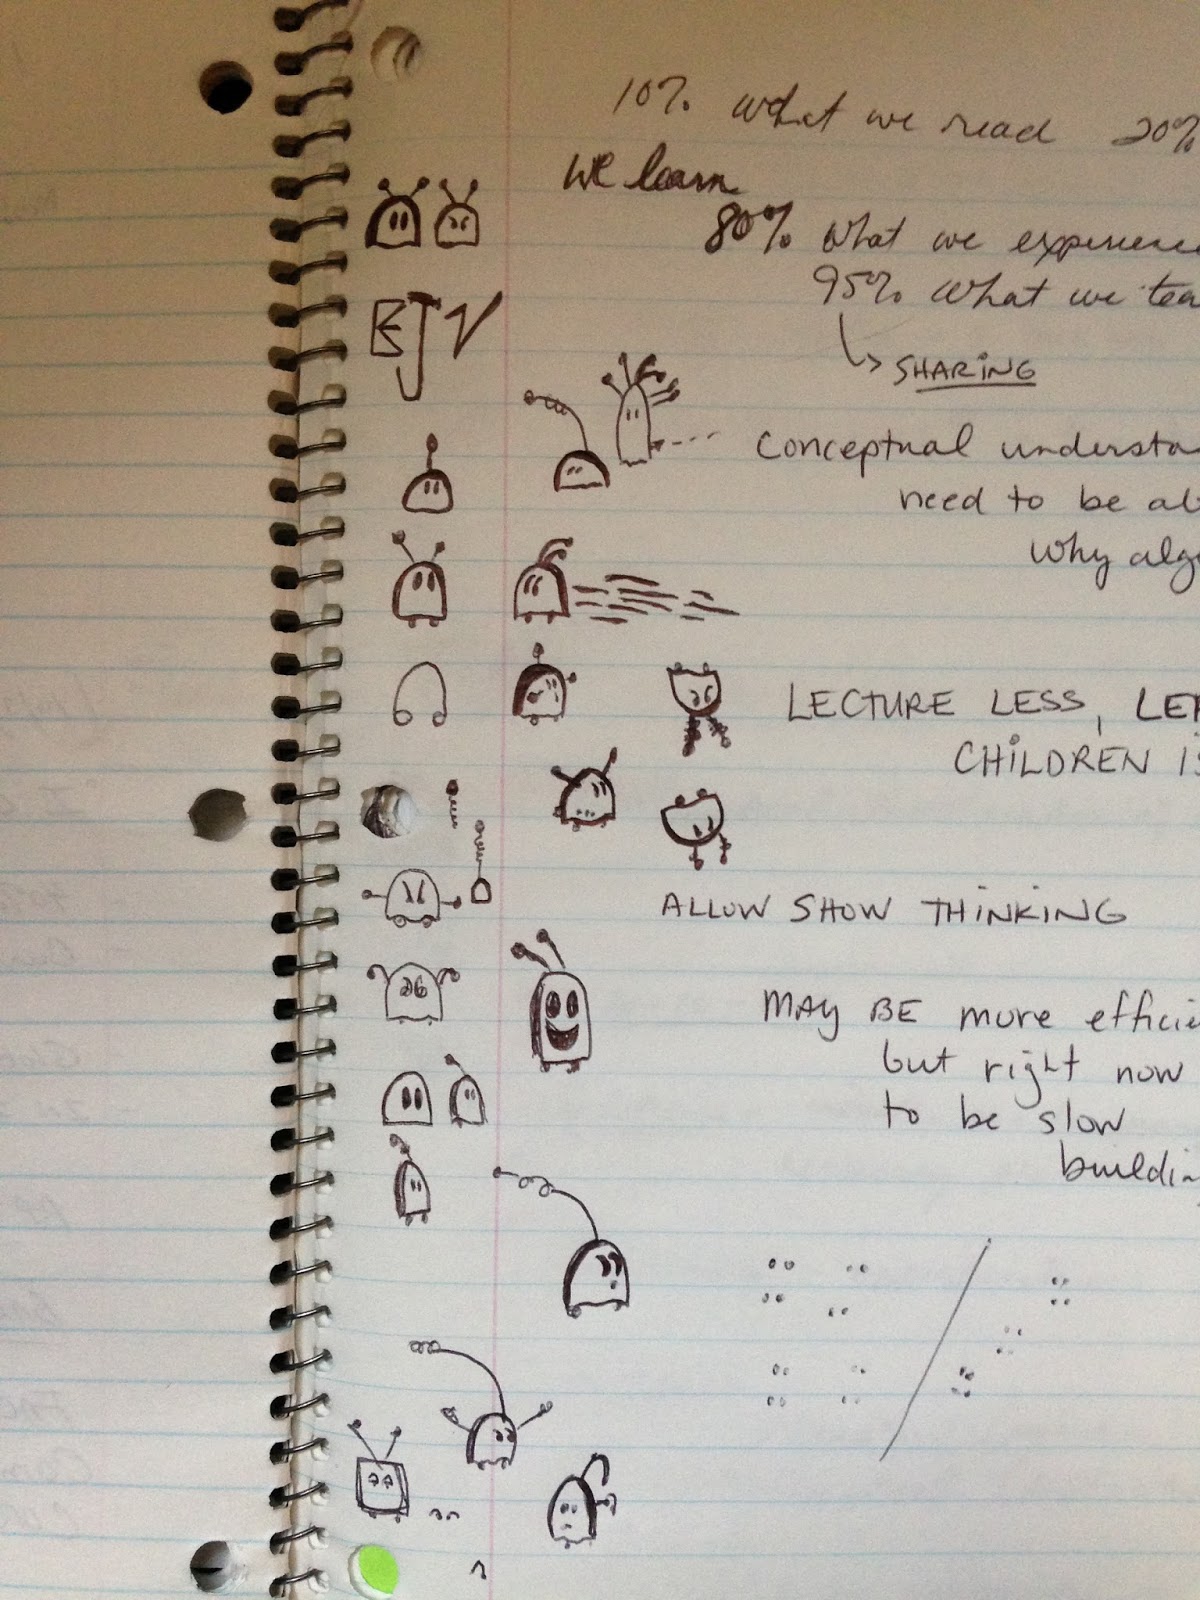 10% what we read 20%
we learn
80% what we experience
95% what we tea
EJV
SHARING
Conceptual understa
need to be al
why algo
LECTURE LESS, LE
CHILDREN IS
ALLOW SHOW THINKING
MAY BE more efficie
but right now
to be slow
buildin